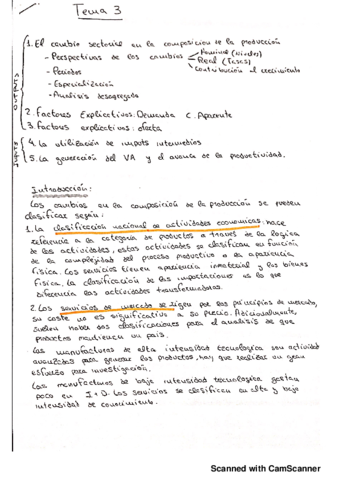 Tema 3
1. El cambio sectorial en la composicion de la producción
- Perspectivas de los cambios
Nominal (Niveles)
Real (Tasas)
Contribución al crecimiento
- Periodos
- Especialización
- Analisis desagregado
2. Factores Explicativos: Demanda C. Aparente
3. Factores explicativos: oferta
4. La utilización de inputs intermedios
5. La generación del VA y el avance de la productividad.
Introducción:
Los cambios en la composición de la producción se pueden
clasificar según:
1. La clasificación nacional de actividades economicas, hace
referencia a la categoria de productos a traves de la logica
de las actividades, estas actividades se clasifican en función
de la complejidad del proceso productivo o la apariencia
física. Los servicios tienen apariencia inmaterial y los bienes
física. La clasificación de las importaciones es lo que
diferencia las actividades transformadoras.
2. Los servicios de mercado se rigen por los principios de mercado,
su coste no es significativo a su precio. Adicionalmente,
suelen haber dos clasificaciones para el analisis de que
productos mantienen un pais.
Las manufacturas de alta intensidad tecnologica son actividad
avanzadas para generar los productos, hay que realizar un gran
esfuerzo para investigación.
Las manufacturas de baja intensidad tecnologica gastan
poco en I+D. Los servicios se clasifican en alta y baja
intensidad de conocimiento.
Scanned with CamScanner